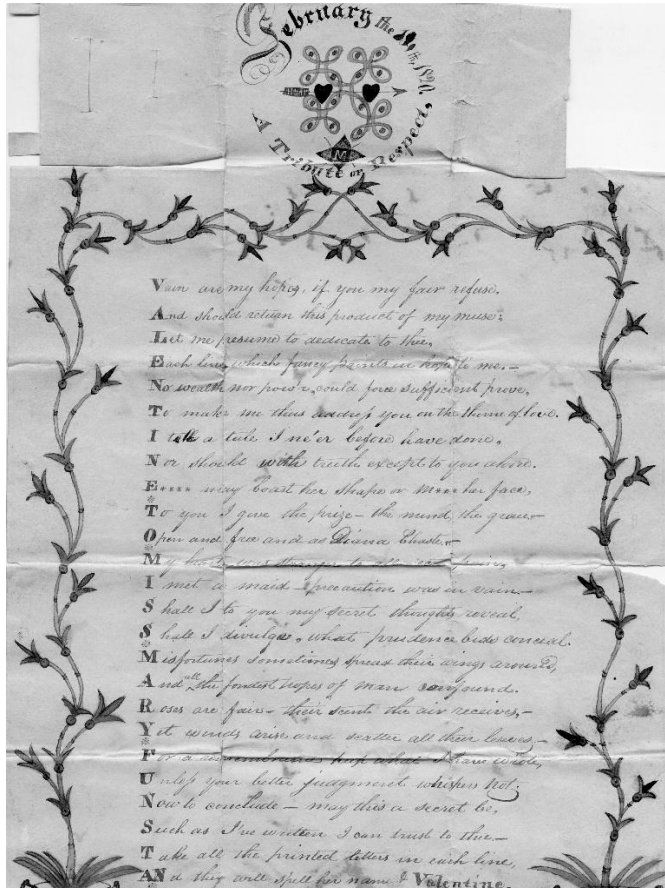 February the 14th, 1820.
M
A Tribute of Respect,
Vain are my hopes, if you my fair refuse,
And should return this product of my muse;
Let me presume to dedicate to thee,
Each line, which fancy paints in hope to me,—
No wealth nor pow'r, could force sufficient prove,
To make me thus address you on the theme of love.
I tell a tale I ne'er before have done,
Nor should with truth except to you alone.
E.... may boast her shape or M... her face,
To you I give the prize – the mind the grace,—
Open and free and as Diana Chaste,—
My heart was stranger to
I met a maid – precaution was in vain—
Shall I to you my secret thoughts reveal,
Shall I divulge, what prudence bids conceal.
Misfortunes sometimes spread their wings around,
And all the fondest hopes of man confound.
Roses are fair – their scent the air receives,—
Yet winds arise and scatter all their leaves,—
For a remembrance keep what I have wrote,
Unless your better judgment whispers not;
Now to conclude – may this a secret be,
Such as I've written I can trust to thee—
Take all the printed letters in each line,
ANd they will spell her name & Valentine.